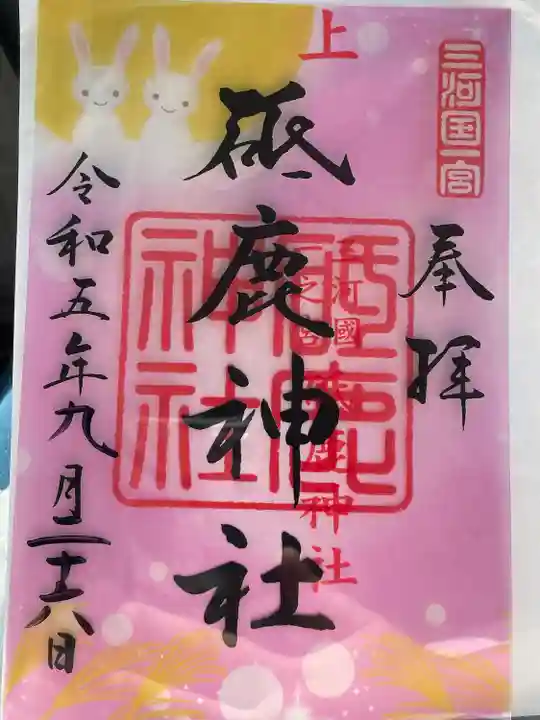 三河国一宮
奉拝
上
三河國
一之宮
砥鹿神社
砥鹿神社
砥鹿神社
令和五年九月二十八日